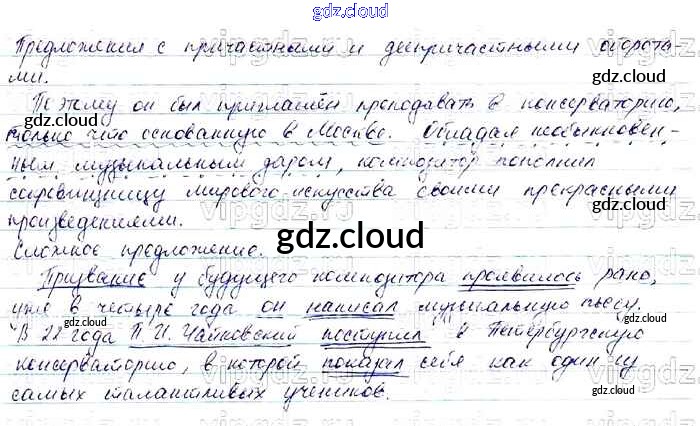 gdz.cloud
Предложения с причастными и деепричастными оборота-
ми.
Поэтому он был приглашён преподавать в консерваторию,
только что основанную в Москве. Обладая необыкновен-
ным музыкальным даром, композитор пополнил
сокровищницу мирового искусства своими прекрасными
произведениями.
Сложное предложение.
Призвание у будущего композитора проявилось рано,
уже в четыре года он написал музыкальную пьесу.
В 22 года П. И. Чайковский поступил в Петербургскую
консерваторию, в которой показал себя как один из
самых талантливых учеников.
gdz.cloud